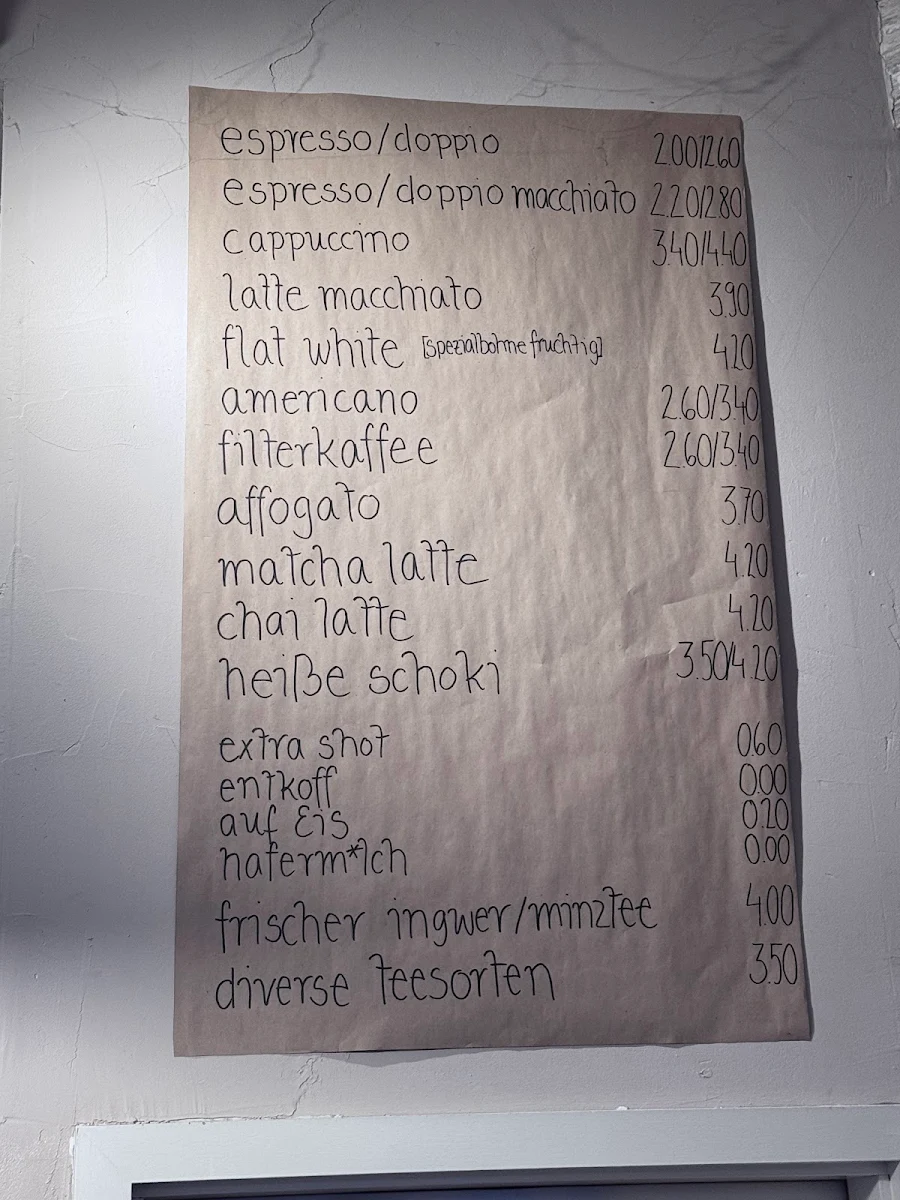 espresso/doppio 2.00/2.60
espresso/doppio macchiato 2.20/2.80
cappuccino 3.40/4.40
latte macchiato 3.90
flat white [spezialbohne fruchtig] 4.20
americano 2.60/3.40
filterkaffee 2.60/3.40
affogato 3.70
matcha latte 4.20
chai latte 4.20
heiße schoki 3.50/4.20
extra shot 0.60
entkoff 0.00
auf Eis 0.20
haferm*lch 0.00
frischer ingwer/minztee 4.00
diverse teesorten 3.50